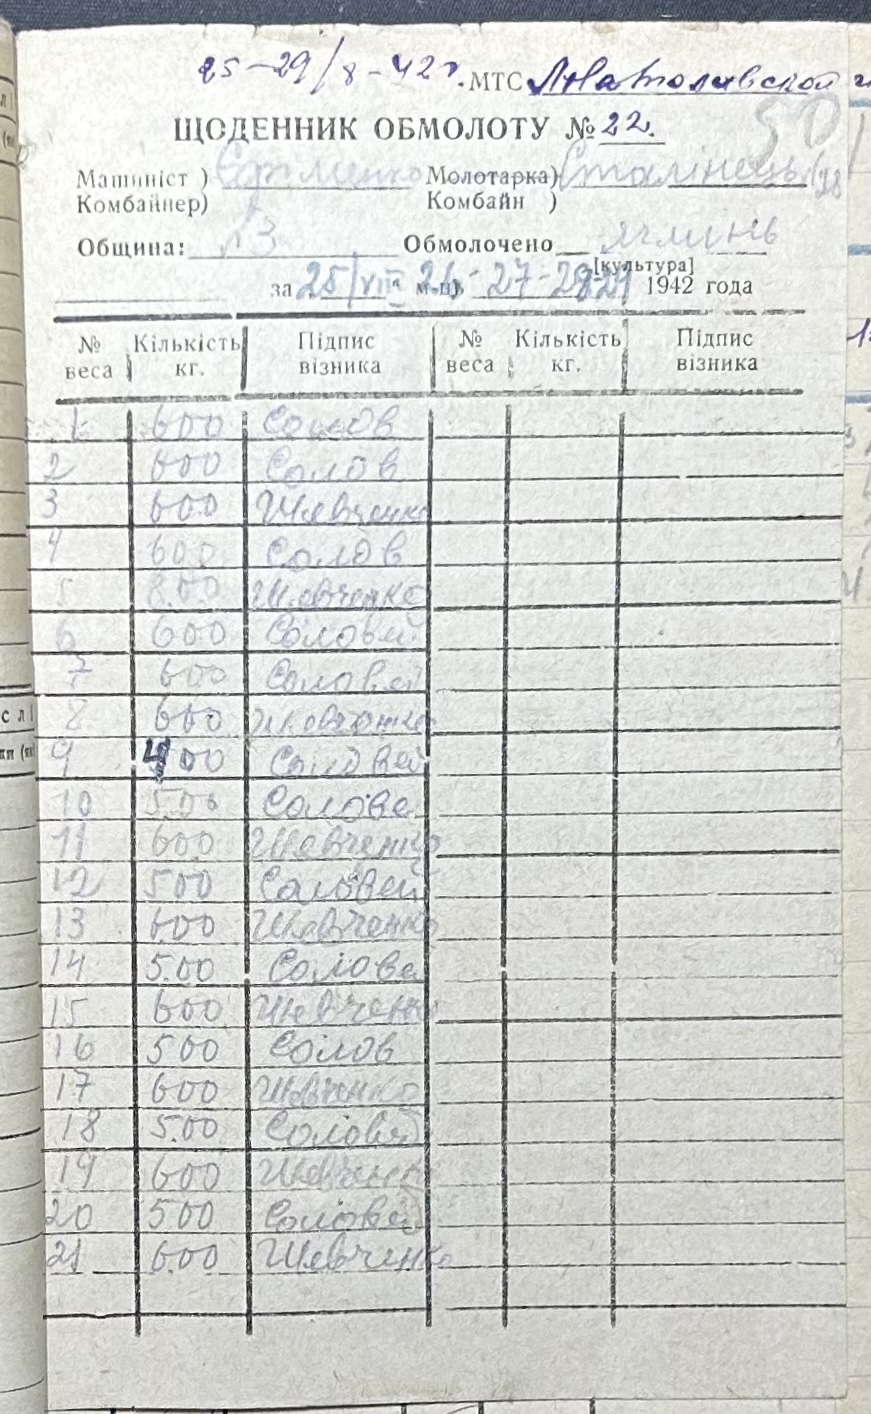 25-29/8-42г. МТС Анатолівской
ЩОДЕННИК ОБМОЛОТУ № 22.
50
Машиніст ) Єрьменко Молотарка) Сталінець
Комбайнер) Комбайн )
Община: №3 Обмолочено ячмінь
[культура]
за 25/VIII м-ць 26-27-28-29 1942 года
№ веса Кількість кг. Підпис візника № веса Кількість кг. Підпис візника
1 600 Солов
2 600 Солов
3 600 Шевченко
4 600 Солов
5 800 Шевченко
6 600 Соловей
7 600 Соловей
8 600 Шевченко
9 400 Соловей
10 500 Солове
11 600 Шевченко
12 500 Соловей
13 600 Шевченко
14 500 Солове
15 600 Шевченко
16 500 Солов
17 600 Шевченко
18 500 Соловей
19 600 Шевченко
20 500 Соловей
21 600 Шевченко